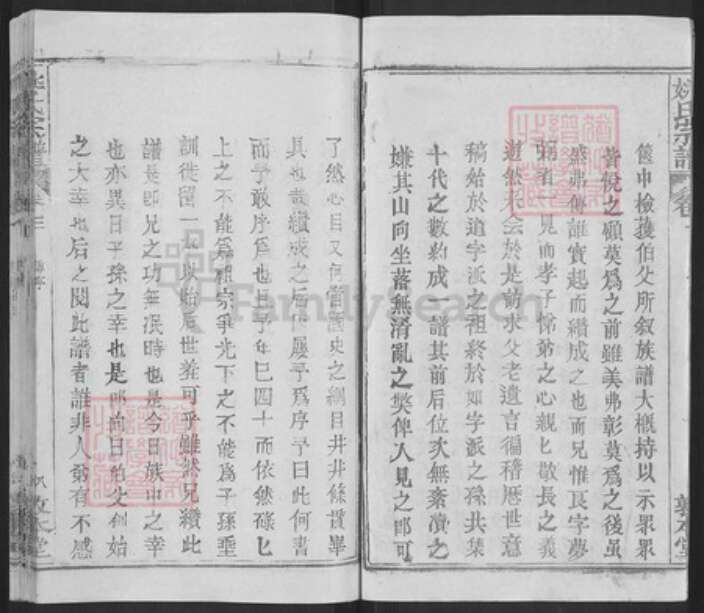 姚氏宗譜 卷
敦本堂
篋中檢獲伯父所叙族譜大概持以示眾眾
皆悅之顧莫為之前雖美弗彰莫為之後雖
盛弗傳誰實起而續成之也而兄惟艮字夢
弼者見而孝子悌弟之心親親敬長之義
遊然來會於是訪求父老遺言徧稽歷世意
稿始於道字派之祖終於如字派之孫共集
十代之數約成一譜其前後位次無紊瀆之
嫌其山向坐落無淆亂之獘俾人見之即可
了然心目又何啻國史之綱目井井條貫畢
具也哉續成之后屢予為序予曰此何書
而予敢序為也且予年巳四十而依然碌七
上之不能為祖宗爭光下之不能為子孫垂
訓徒留一以貽后世羞可乎雖然兄續此
譜是即兄之功無泯時也是今日族中之幸
也亦異日子孫之幸也是即向日伯父創始
之大幸也后之閱此譜者誰非人弟有不感
敦本堂
FamilySearch